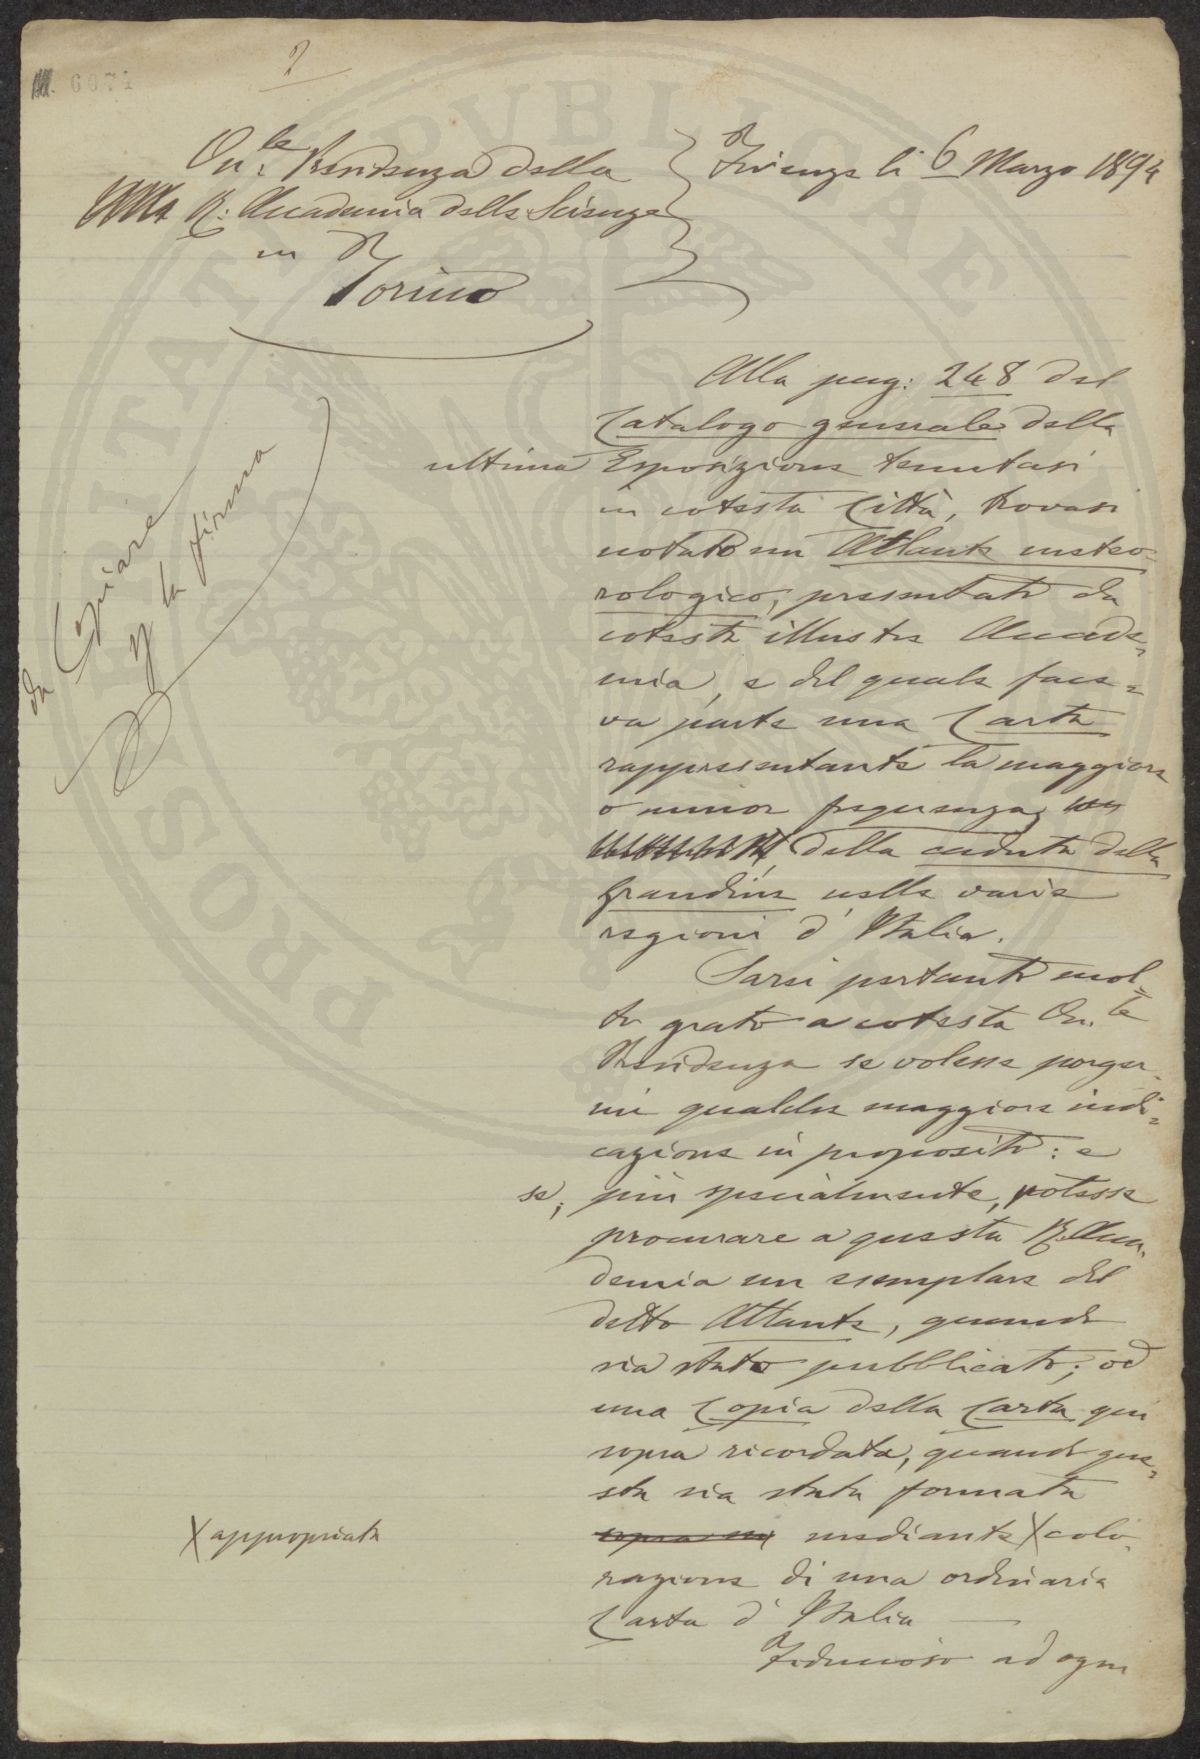 6074
2
On.le Presidenza della
R: Accademia delle Scienze
in
Torino
Firenze li 6 Marzo 1894
da Copiare
p la firma
Alla pag: 248 del
Catalogo generale della
ultima Esposizione tenutasi
in cotesta Città, trovasi
notato un Atlante meteo-
rologico, presentato da
cotesta illustre Accade=
mia, e del quale face=
va parte una Carta
rappresentante la maggiore
o minor frequenza,
della caduta della
grandine nelle varie
regioni d'Italia.
Sarei pertanto mol=
to grato a cotesta On.le
Presidenza se volesse porger-
mi qualche maggiore indi=
cazione in proposito: e
se, più specialmente, potesse
procurare a questa R. Acca-
demia un esemplare del
detto Atlante, quando
sia stato pubblicato; od
una Copia della Carta qui
sopra ricordata, quando que=
sta sia stata formata
sopra una mediante X colo-
X appropriata
razione di una ordinaria
Carta d'Italia
Fiducioso ad ogni